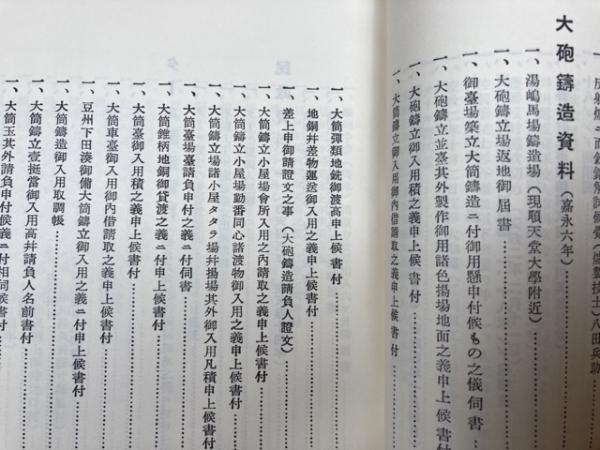 反射爐ニ而鑄鍊鎔解試候覺(盛製技士)八田兵助
大砲鑄造資料(嘉永六年)
一、湯嶋馬場鑄造場(現順天堂大學附近)
一、大砲鑄立場返地御屆書
一、御臺場築立大筒鑄造ニ付御用懸申付候ものの儀伺書
一、大砲鑄立並臺其外製作御用諸色揚場地面之義申上候書付
一、大砲鑄立御入用積之義申上候書付
一、大筒鑄立御入用御內借請取之義申上候書付
一、大筒彈類地銑御渡高申上候書付
一、地銅幷差物運送御入用之義申上候書付
一、差上申御請證文之事(大砲鑄造請負人證文)
一、大筒鑄立小屋場會所入用之內請取之義申上候書付
一、大筒鑄立小屋場勤番同心諸渡物御入用之義申上候書付
一、大筒鑄立場諸小屋タタラ場幷揚場其外御入用凡積申上候書付
一、大筒臺場臺請負申付之義ニ付伺書
一、大筒錐柄地銅御貸渡之義ニ付申上候書付
一、大筒臺御入用積之義申上候書付
一、大筒車臺御入用御內借請取之義申上候書付
一、豆州下田湊御備大筒鑄立御入用之義ニ付申上候書付
一、大筒鑄造御入用取調帳
一、大筒鑄立壹挺當御入用高幷請負人名前書付
一、大筒玉其外請負申付候義ニ付相伺候書付